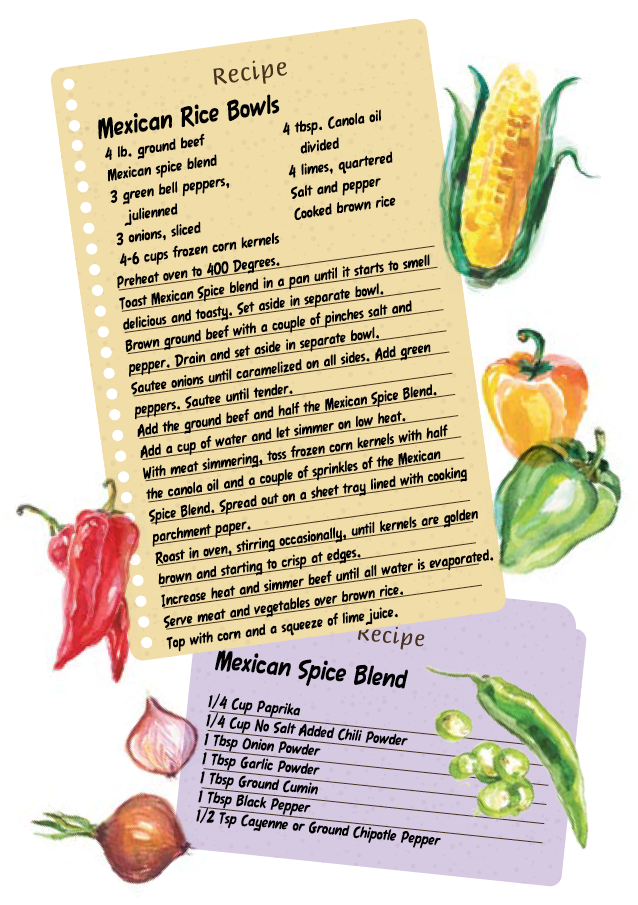 Recipe
Mexican Rice Bowls
4 lb. ground beef
Mexican spice blend
3 green bell peppers,
julienned
3 onions, sliced
4-6 cups frozen corn kernels
4 tbsp. Canola oil
divided
4 limes, quartered
Salt and pepper
Cooked brown rice
Preheat oven to 400 Degrees.
Toast Mexican Spice blend in a pan until it starts to smell
delicious and toasty. Set aside in separate bowl.
Brown ground beef with a couple of pinches salt and
pepper. Drain and set aside in separate bowl.
Sautee onions until caramelized on all sides. Add green
peppers. Sautee until tender.
Add the ground beef and half the Mexican Spice Blend.
Add a cup of water and let simmer on low heat.
With meat simmering, toss frozen corn kernels with half
the canola oil and a couple of sprinkles of the Mexican
Spice Blend. Spread out on a sheet tray lined with cooking
parchment paper.
Roast in oven, stirring occasionally, until kernels are golden
brown and starting to crisp at edges.
Increase heat and simmer beef until all water is evaporated.
Serve meat and vegetables over brown rice.
Top with corn and a squeeze of lime juice.
Recipe
Mexican Spice Blend
1/4 Cup Paprika
1/4 Cup No Salt Added Chili Powder
1 Tbsp Onion Powder
1 Tbsp Garlic Powder
1 Tbsp Ground Cumin
1 Tbsp Black Pepper
1/2 Tsp Cayenne or Ground Chipotle Pepper